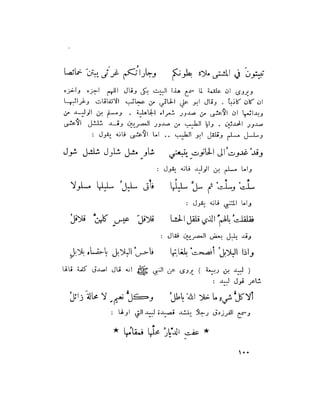 تبيتون في المشتى ملاء بطونكم وجاراتكم غرثى يبتن خمائصا
ويروى ان علقمة لما سمع هذا البيت بكى وقال اللهم اجزه واخزه
ان كان كاذباً . وقال ابو علي الحاتمي من عجائب الاتفاقات وغرائبهـا
وبدائعها ان الأعشى من صدور شعراء الجاهلية . ومسلم بن الوليد من
صدور المحدثين . وابا الطيب من صدور العصريين وقد شلشل الأعشى
وسلسل مسلم وقلقل ابو الطيب .. اما الأعشى فانه يقول :
وقد غدوت الى الحانوت يتبعني شاوٍ مشل شلول شلشل شول
واما مسلم بن الوليد فانه يقول :
سلّت وسلّت ثم سلّ سليلُها فأتى سليلُ سليلها مسلولا
واما المتنبي فانه يقول :
فقلقلتُ بالهمّ الذي قلقل الحشا قلاقلَ عيسٍ كلهنّ قلاقلُ
وقد يلبل بعض العصريين فقال :
واذا البلابل أفصحت بلغاتها فأحسُ البلابل باحتساء بلابلِ
{ لبيد بن ربيعة } يروى عن النبي ﷺ انه قال اصدق كلمة قالها
شاعر قول لبيد :
ألا كلُّ شيءٍ ما خلا اللهَ باطلُ وكلُّ نعيمٍ لا محالةَ زائلُ
وسمع الفرزدق رجلاً ينشد قصيدة لبيد التي اولها :
* عفتِ الديّارُ محلّها فمقامُها *
١٠٠